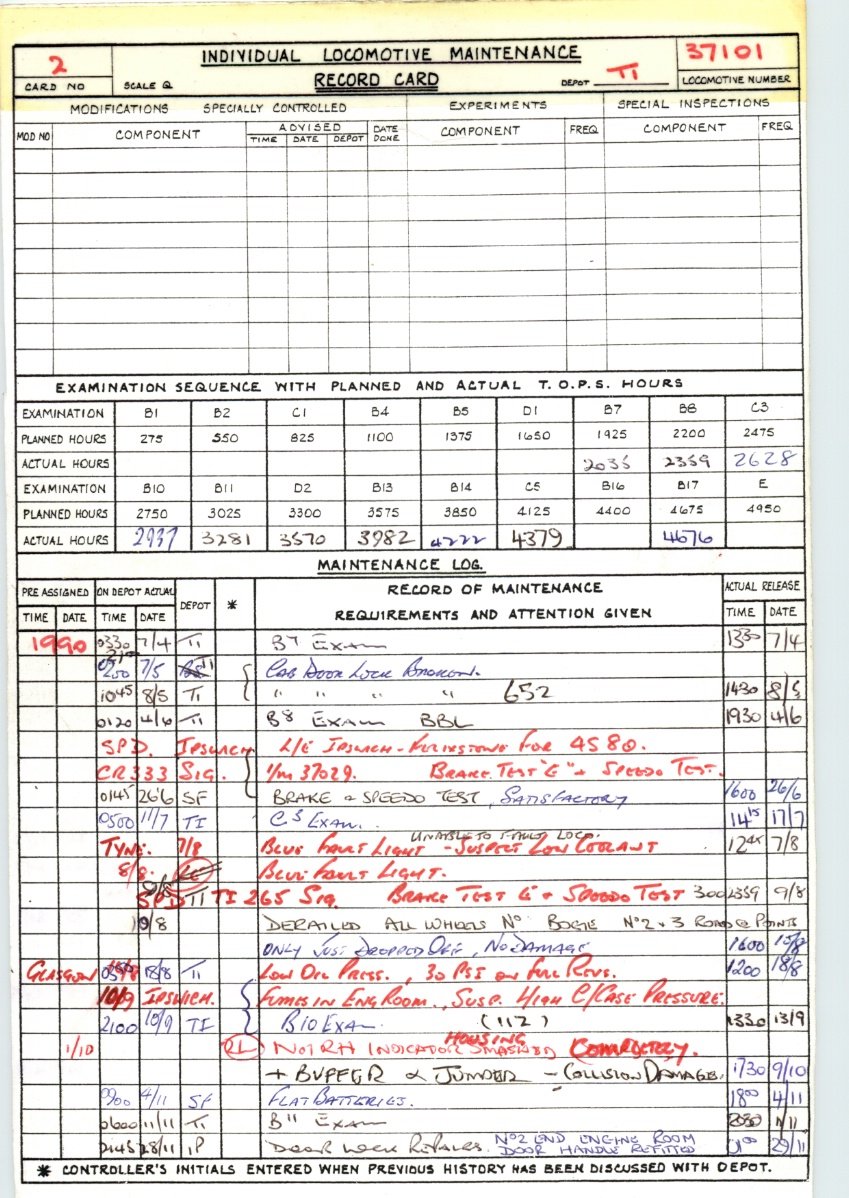 2 INDIVIDUAL LOCOMOTIVE MAINTENANCE 37101
CARD NO SCALE Q RECORD CARD DEPOT TI LOCOMOTIVE NUMBER
MODIFICATIONS SPECIALLY CONTROLLED EXPERIMENTS SPECIAL INSPECTIONS
MOD NO COMPONENT ADVISED DATE DONE COMPONENT FREQ COMPONENT FREQ
TIME DATE DEPOT
EXAMINATION SEQUENCE WITH PLANNED AND ACTUAL T.O.P.S. HOURS
EXAMINATION B1 B2 C1 B4 B5 D1 B7 B8 C3
PLANNED HOURS 275 550 825 1100 1375 1650 1925 2200 2475
ACTUAL HOURS 2035 2359 2628
EXAMINATION B10 B11 D2 B13 B14 C5 B16 B17 E
PLANNED HOURS 2750 3025 3300 3575 3850 4125 4400 4675 4950
ACTUAL HOURS 2937 3281 3570 3982 4222 4379 4676
MAINTENANCE LOG.
PRE ASSIGNED ON DEPOT ACTUAL DEPOT * RECORD OF MAINTENANCE ACTUAL RELEASE
TIME DATE TIME DATE REQUIREMENTS AND ATTENTION GIVEN TIME DATE
1990 0330 7/4 TI B7 EXAM 1330 7/4
7/5 CAB DOOR LOCK BROKEN.
1045 8/5 TI " " " " 652 1430 8/5
0120 4/6 TI B8 EXAM BBL 1930 4/6
SPD. IPSWICH L/E IPSWICH - FELIXSTOWE FOR 4S80.
CR333 SIG. 1/M 37029. BRAKE TEST "E" + SPEEDO TEST.
0145 26/6 SF BRAKE & SPEEDO TEST, SATISFACTORY 1600 26/6
0500 11/7 TI C3 EXAM. 1415 17/7
UNABLE TO FAULT LOCO.
TYNE. 7/8 BLUE FAULT LIGHT - SUSPECT LOW COOLANT 1245 7/8
8/8. BLUE FAULT LIGHT.
9/8 SPD TI TI 265 SIG. BRAKE TEST E + SPEEDO TEST 2359 9/8
9/8 DERAILED ALL WHEELS No BOGIE No 2 & 3 ROAD @ POINTS
ONLY JUST DROPPED OFF, NO DAMAGE 1600 15/8
GLASGOW 18/8 TI LOW OIL PRESS., 30 PSI ON FULL REVS. 1200 18/8
10/9 IPSWICH. FUMES IN ENG ROOM, SUSP. HIGH C/CASE PRESSURE.
2100 10/9 TI B10 EXAM (112) 1330 13/9
HOUSING
1/10 RL No1 RH INDICATOR SMASHED COMPLETELY.
+ BUFFER & JUMPER - COLLISION DAMAGE. 1730 9/10
0900 4/11 SF FLAT BATTERIES. 1800 4/11
0600 11/11 TI B11 EXAM 2030 11/11
0145 28/11 IP DOOR LOCK REPAIRS. No2 END ENGINE ROOM DOOR HANDLE REFITTED 29/11
* CONTROLLER'S INITIALS ENTERED WHEN PREVIOUS HISTORY HAS BEEN DISCUSSED WITH DEPOT.